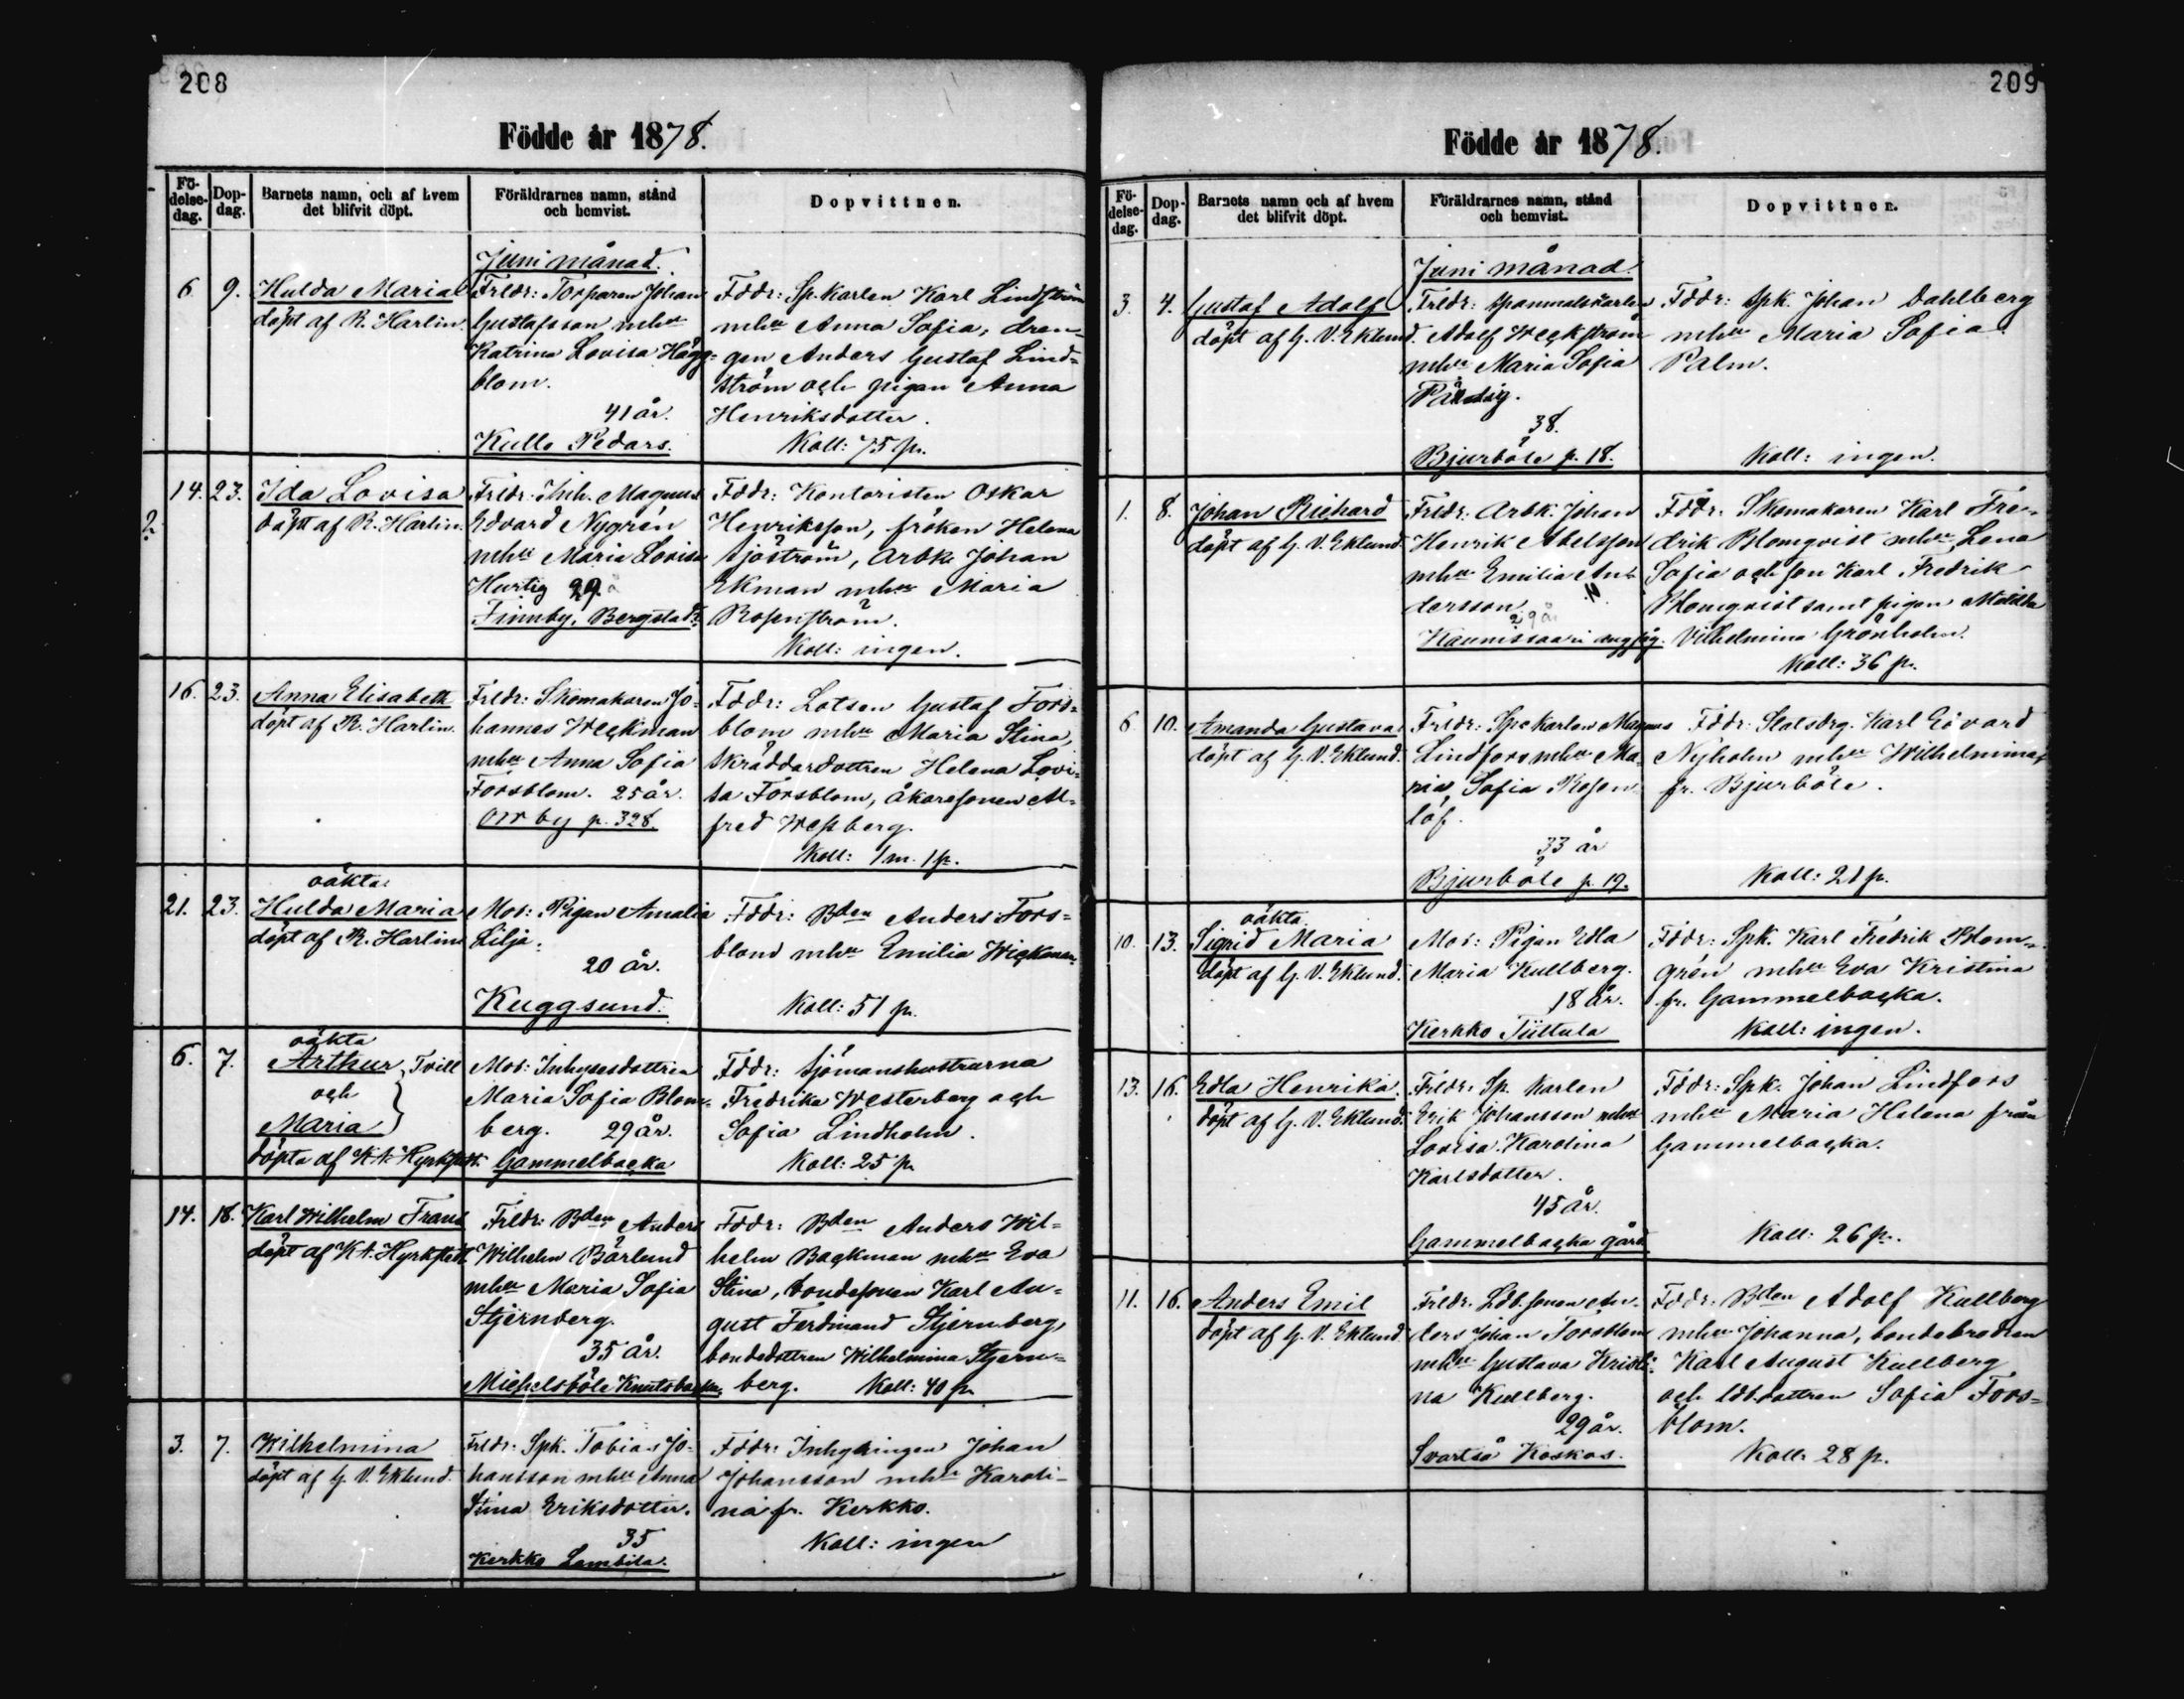 208
Födde år 1878.
Fö-
delse-
dag.
Dop-
dag.
Barnets namn, och af hvem
det blifvit döpt.
Föräldrarnes namn, stånd
och hemvist.
Dopvittnen.
Juni månad.
6 9. Hulda Maria
döpt af R. Harlin.
Frldr: Torparen Johan
Gustafsson mhu
Katrina Lovisa Hägg=
blom.
41 år.
Kullo Pedars.
Fddr: Sp.karlen Karl Lindström
mhu Anna Sofia, dren-
gen Anders Gustaf Lind=
ström och pigan Anna
Henriksdotter.
Koll: 75 p.
14. 23. Ida Lovisa
döpt af R. Harlin.
Frldr: Inh. Magnus
Edvard Nygrén
mhu Maria Lovisa
Hurtig 29
Finnby, Bergstad
Fddr: Kontoristen Oskar
Henriksson, fröken Helena
Sjöström, Arbk. Johan
Ekman mhu Maria
Rosenström.
Koll: ingen.
16. 23. Anna Elisabeth
döpt af R. Harlin.
Frldr: Skomakaren Jo=
hannes Weckman
mhu Anna Sofia
Forsblom. 25 år.
Orrby p. 328.
Fddr: Lotsen Gustaf Fors=
blom mhu Maria Stina,
Skräddardottren Helena Lovi=
sa Forsblom, åkaresonen Al=
fred Wessberg.
Koll: 1 m. 1 p.
21. 23. oäkta
Hulda Maria
döpt af R. Harlin
Mod: Pigan Amalia
Lilja.
20 år.
Kuggsund.
Fddr: Bden Anders Fors=
blom mhu Emilia Wickman.
Koll: 51 p.
6. 7. oäkta
Arthur Tvill
och
Maria
döpta af K.A. Hyrkstedt.
Mod: Inhysesdottren
Maria Sofia Blom-
berg. 29 år.
Gammelbacka
Fddr: Sjömanshustrurna
Fredrika Westerberg och
Sofia Lindholm.
Koll: 25 p.
14. 18. Karl Wilhelm Frans
döpt af K.A. Hyrkstedt.
Frldr: Bden Anders
Wilhelm Börlund
mhu Maria Sofia
Stjernberg.
35 år.
Michelsböle Knutsbacka.
Fddr: Bden Anders Wil=
helm Backman mhu Eva
Stina, bondesonen Karl Au=
gust Ferdinand Stjernberg,
bondedottren Wilhelmina Stjern=
berg. Koll: 40 p.
3. 7. Wilhelmina
döpt af G. V. Eklund.
Frldr: Spk. Tobias Jo-
hansson mhu Anna
Stina Eriksdotter.
35
Kerkko Lambila.
Fddr: Inhysingen Johan
Johansson mhu Karoli-
na fr. Kerkko.
Koll: ingen
209
Födde år 1878.
Fö-
delse-
dag.
Dop-
dag.
Barnets namn och af hvem
det blifvit döpt.
Föräldrarnes namn, stånd
och hemvist.
Dopvittnen.
Juni månad.
3. 4. Gustaf Adolf
döpt af G. V. Eklund.
Frldr: Spanmålskarlen
Adolf Weckström
mhu Maria Sofia
38.
Bjurböle p. 18.
Fddr: Spk. Johan Dahlberg
mhu Maria Sofia
Palm.
Koll: ingen.
1. 8. Johan Richard
döpt af G. V. Eklund.
Frldr: Arbk. Johan
Henrik Abelsson
mhu Emilia An-
dersson
29 år
Kaunissaari ångsåg.
Fddr: Skomakaren Karl Fre-
drik Blomqvist mhu Lena
Sofia och son Karl Fredrik
Blomqvist samt pigan Matilda
Vilhelmina Grönholm.
Koll: 36 p.
6 10. Amanda Gustava
döpt af G. V. Eklund.
Frldr: Sp.karlen Magnus
Lindfors mhu Ma-
ria Sofia Rosen-
löf.
33 år
Bjurböle p. 19.
Fddr: Statsdrg. Karl Edvard
Nyholm mhu Wilhelmina
fr. Bjurböle.
Koll: 21 p.
10. 13. oäkta
Sigrid Maria
döpt af G. V. Eklund.
Mod: Pigan Edla
Maria Kullberg.
18 år.
Kerkko Tiittula
Fddr: Spk. Karl Fredrik Blom-
grén mhu Eva Kristina
fr. Gammelbacka.
Koll: ingen.
13. 16. Edla Henrika.
döpt af G. V. Eklund.
Frldr: Sp.karlen
Erik Johansson mhu
Lovisa Karolina
Karlsdotter.
45 år.
Gammelbacka gård.
Fddr: Spk. Johan Lindfors
mhu Maria Helena från
Gammelbacka.
Koll: 26 p.
11. 16. Anders Emil
döpt af G. V. Eklund
Frldr: Ldb.sonen An-
ders Johan Forsblom
mhu Gustava Kristi-
na Kullberg.
29 år.
Svartså Koskas.
Fddr: Bden Adolf Kullberg
mhu Johanna, bondebrodren
Karl August Kullberg
och ldb.dottren Sofia Fors=
blom.
Koll: 28 p.